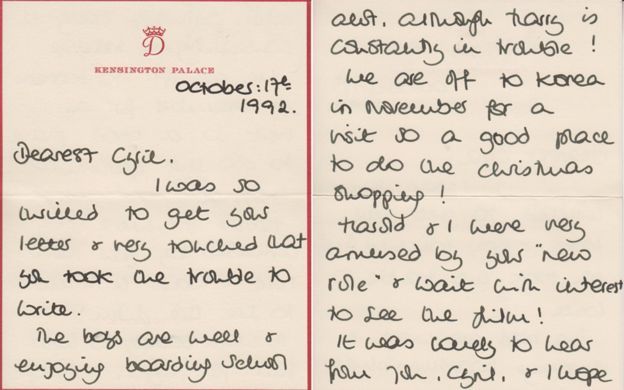 D
KENSINGTON PALACE
October: 17th
1992.
Dearest Cyril.
I was so
thrilled to get your
letter & very touched that
you took the trouble to
write.
The boys are well &
enjoying boarding school
alot, although Harry is
constantly in trouble!
We are off to Korea
in November for a
visit so a good place
to do the Christmas
shopping!
Harold & I were very
amused by your "new
role" & wait with interest
to see the film!
It was lovely to hear
from you, Cyril, & I hope